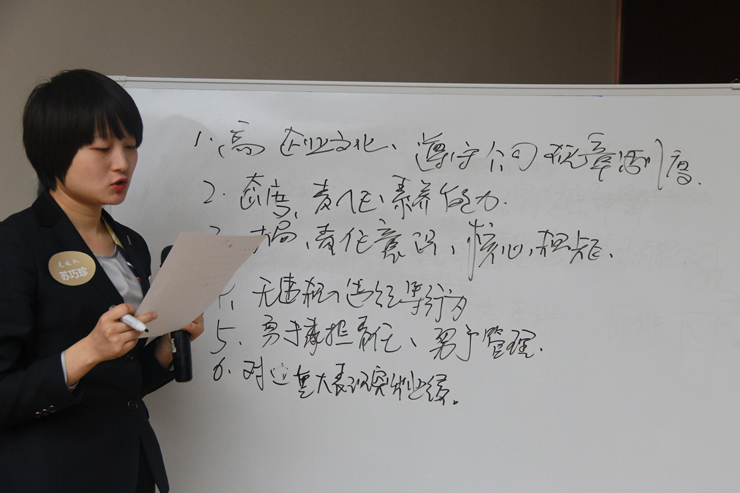 1. 高 企业文化、遵守公司规章制度.
2. 态度, 责任, 素养能力
3. 大局, 责任意识, 核心,
4. 无违规、违纪等行为
5. 勇于承担责任、勇于管理.
6. 对 重大表
苏巧珍